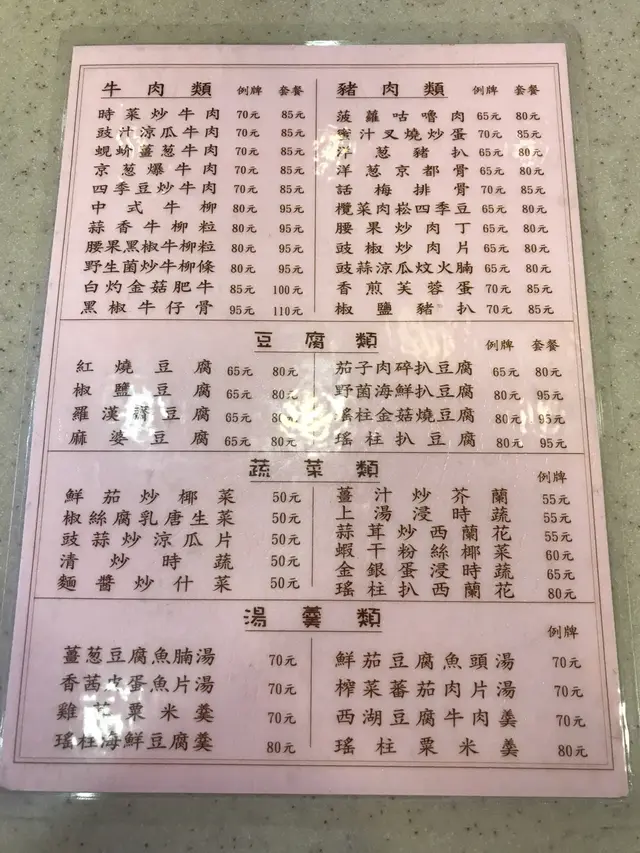 牛肉類 例牌 套餐
時菜炒牛肉 70元 85元
豉汁涼瓜牛肉 70元 85元
蜆蚧薑葱牛肉 70元 85元
京葱爆牛肉 70元 85元
四季豆炒牛肉 70元 85元
中式牛柳 80元 95元
蒜香牛柳粒 80元 95元
腰果黑椒牛柳粒 80元 95元
野生菌炒牛柳條 80元 95元
白灼金菇肥牛 85元 100元
黑椒牛仔骨 95元 110元
豬肉類 例牌 套餐
菠蘿咕嚕肉 65元 80元
蜜汁叉燒炒蛋 70元 85元
洋葱豬扒 65元 80元
洋葱京都骨 65元 80元
話梅排骨 70元 85元
欖菜肉崧四季豆 65元 80元
腰果炒肉丁 65元 80元
豉椒炒肉片 65元 80元
豉蒜涼瓜炆火腩 65元 80元
香煎芙蓉蛋 70元 85元
椒鹽豬扒 70元 85元
豆腐類 例牌 套餐
紅燒豆腐 65元 80元
椒鹽豆腐 65元 80元
羅漢齋豆腐 65元 80元
麻婆豆腐 65元 80元
茄子肉碎扒豆腐 65元 80元
野菌海鮮扒豆腐 80元 95元
瑤柱金菇燒豆腐 80元 95元
瑤柱扒豆腐 80元 95元
蔬菜類 例牌
鮮茄炒椰菜 50元
椒絲腐乳唐生菜 50元
豉蒜炒涼瓜片 50元
清炒時蔬 50元
麵醬炒什菜 50元
薑汁炒芥蘭 55元
上湯浸時蔬 55元
蒜茸炒西蘭花 55元
蝦干粉絲椰菜 60元
金銀蛋浸時蔬 65元
瑤柱扒西蘭花 80元
湯羹類 例牌
薑葱豆腐魚腩湯 70元
香茜皮蛋魚片湯 70元
雞茸粟米羹 70元
瑤柱海鮮豆腐羹 80元
鮮茄豆腐魚頭湯 70元
榨菜蕃茄肉片湯 70元
西湖豆腐牛肉羹 70元
瑤柱粟米羹 80元